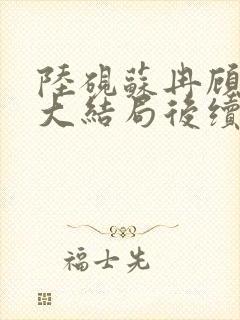 陸硯蘇冉顧
大結局後續
福士先